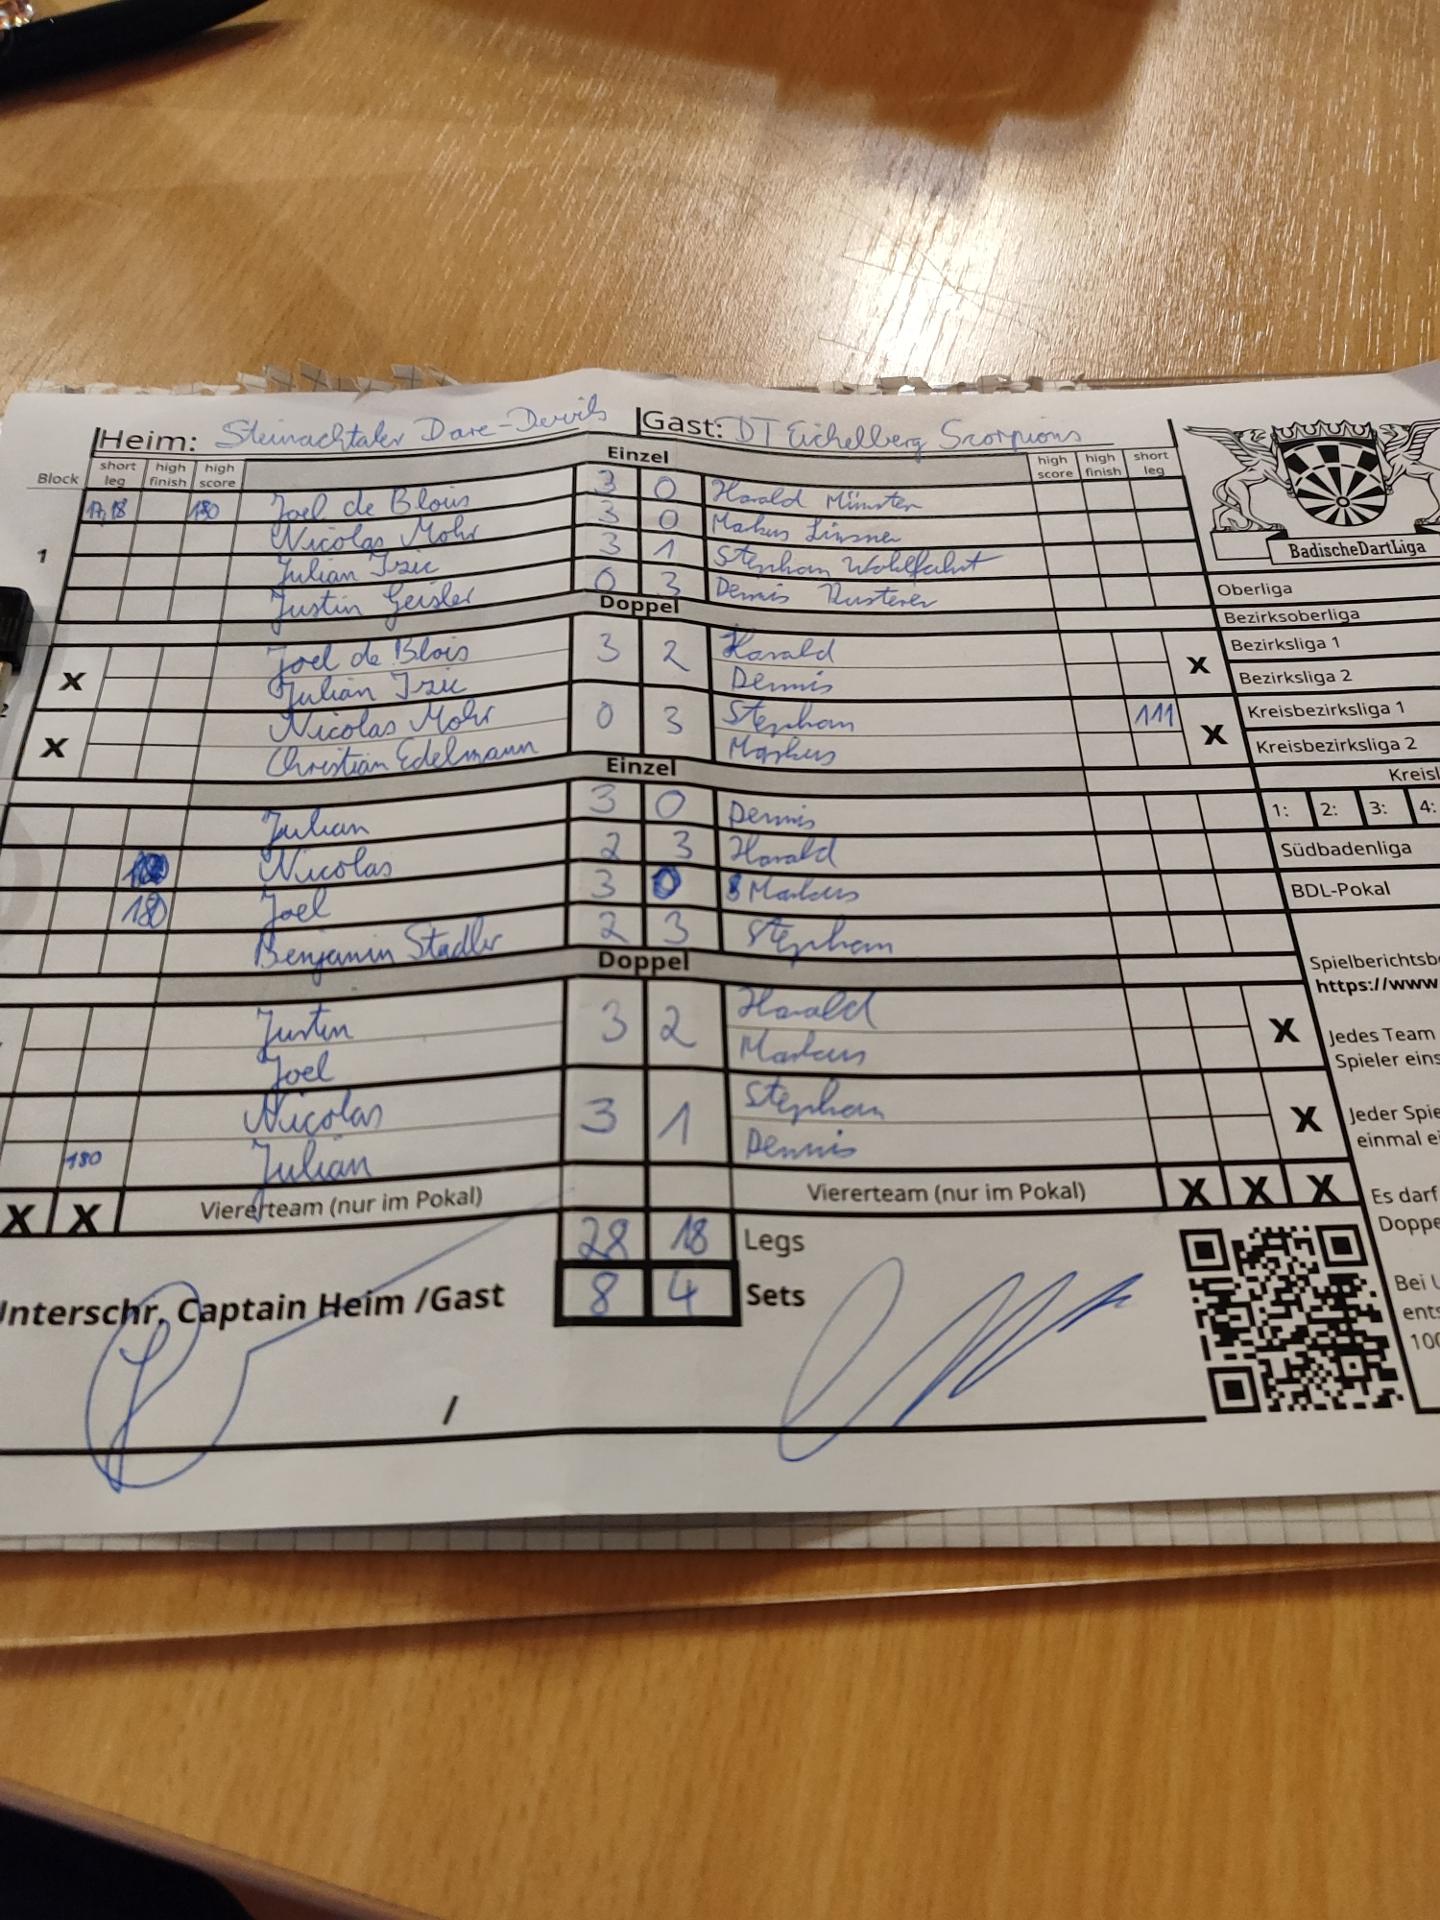 Heim: Steinachtaler Dare-Devils Gast: DT Eichelberg Scorpions
Block short leg high finish high score Einzel high score high finish short leg
17,18 180 Joel de Blois 3 0 Harald Münster
Nicolas Mohr 3 0 Markus Linsner
1 Julian Izic 3 1 Stephan Wohlfahrt
Justin Geisler 0 3 Dennis
Doppel
Joel de Blois 3 2 Harald
X Julian Izic Dennis X
Nicolas Mohr 0 3 Stephan 111
X Christian Edelmann Markus X
Einzel
Julian 3 0 Dennis
Nicolas 2 3 Harald
180 Joel 3 0 Markus
Benjamin Stadler 2 3 Stephan
Doppel
Justin 3 2 Harald
Joel Markus X
Nicolas 3 1 Stephan
180 Julian Dennis X
X X Viererteam (nur im Pokal) Viererteam (nur im Pokal) X X X
28 18 Legs
Unterschr. Captain Heim /Gast 8 4 Sets
/
BadischeDartLiga
Oberliga
Bezirksoberliga
Bezirksliga 1
Bezirksliga 2
Kreisbezirksliga 1
Kreisbezirksliga 2
Kreisl
1: 2: 3: 4:
Südbadenliga
BDL-Pokal
Spielberichtsb
https://www
Jedes Team
Spieler eins
Jeder Spie
einmal ei
Es darf
Doppe
Bei U
ents
100